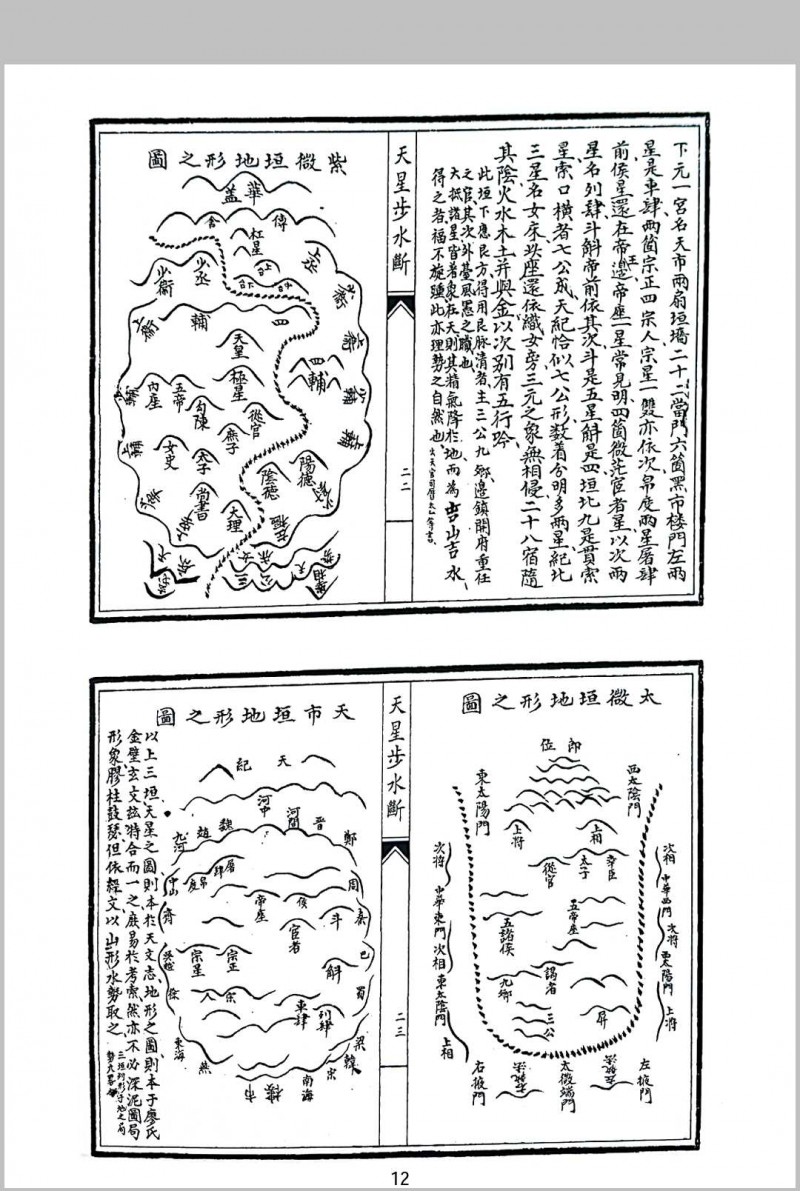 下元一宮名天市兩扇垣墻二十二當門六箇黑市楼門左兩
星是車肆兩箇宗正四宗人宗星一雙亦依次帛度兩星屠肆
前侯星還在帝王邊帝座一星常見明四箇微茫宦者星以次兩
星名列肆斗斛帝前依其次斗是五星斛是四垣北九是貫索
星索口橫者七公成天紀恰似七公形数着分明多兩星紀北
三星名女床此座還依織女旁三元之象無相侵二十八宿隨
其陰火水木土并與金以次別有五行吟
此垣下應艮方得用艮脉清者主三公九卿邊鎮開府重任
之官其次外臺風憲之職也
大抵諸星皆着象在天則其精氣降於地而為吉山吉水
得之者福不旋踵此亦理勢之自然也
天星步水斷
二二
紫微垣地形之圖
華蓋
傳舍
杠星
上丞
少丞
少衛
輔
四
四輔
天皇
極星
五帝
內座
勾陳
從官
庶子
女史
天子
尚書
陰德
陽德
大理
三公
太微垣地形之圖
郎位
東太陽門
西太陰門
上將
上相
從官
太子
幸臣
五帝座
五諸侯
謁者
九卿
三公
屏
次將
中華東門
次相
東太陰門
上相
次相
中華西門
次將
西太陽門
上將
右掖門
太微端門
左掖門
天星步水斷
二三
天市垣地形之圖
天紀
河中
河間
晉
鄭
魏
趙
九河
中山
齊
徐
東海
燕
南海
宋
韓
梁
蜀
巴
秦
周
屠肆
帛度
帝座
侯
宦者
斗
斛
宗星
宗正
宗人
車肆
列肆
市樓
以上三垣天星之圖則本於天文志地形之圖則本于廖氏
金壁玄文兹特合而一之庶易於考索然亦不必深泥圖局
形象膠柱鼓瑟但依經文以山形水勢取之
12